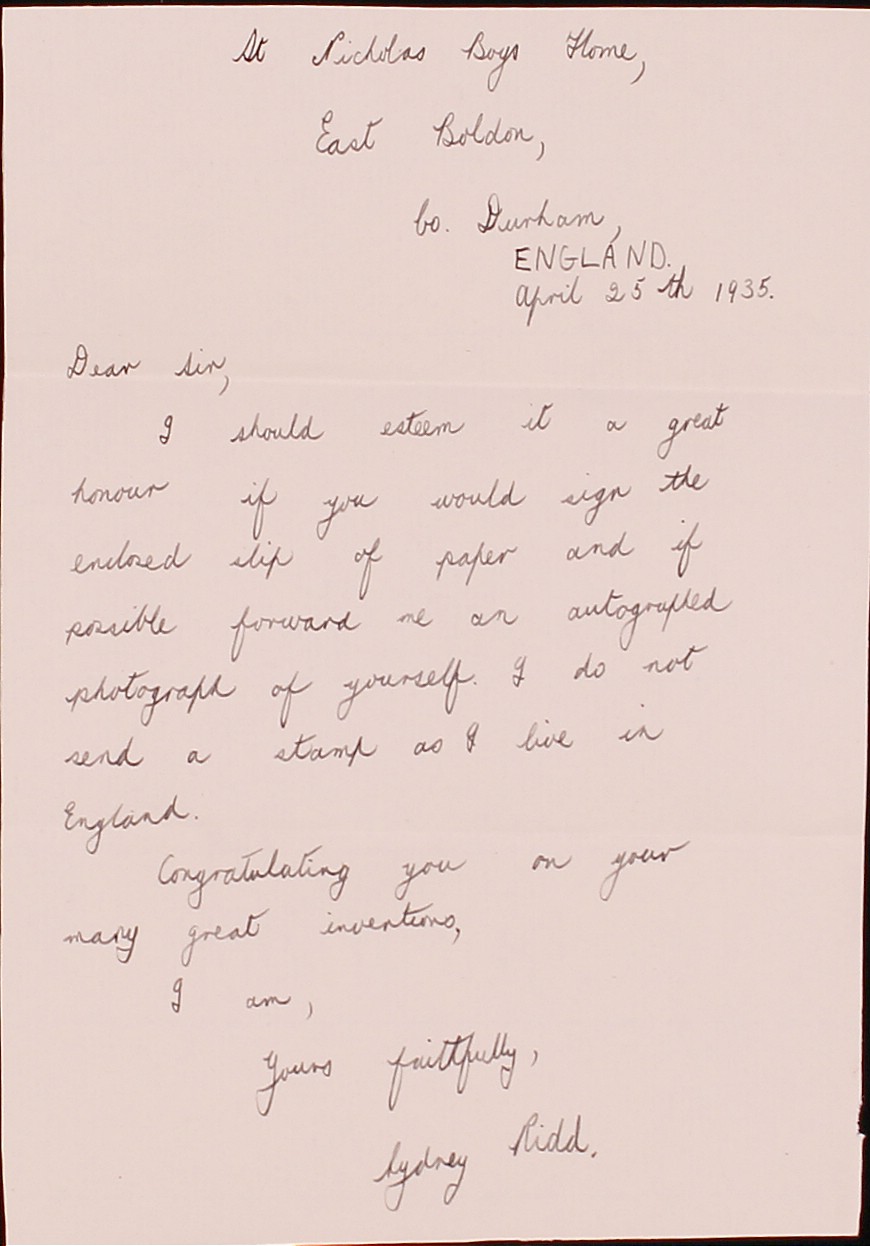 St Nicholas Boys Home,
East Boldon,
Co. Durham,
ENGLAND.
April 25th 1935.
Dear Sir,
I should esteem it a great
honour if you would sign the
enclosed slip of paper and if
possible forward me an autographed
photograph of yourself. I do not
send a stamp as I live in
England.
Congratulating you on your
many great inventions,
I am,
Yours faithfully,
Sydney Ridd.